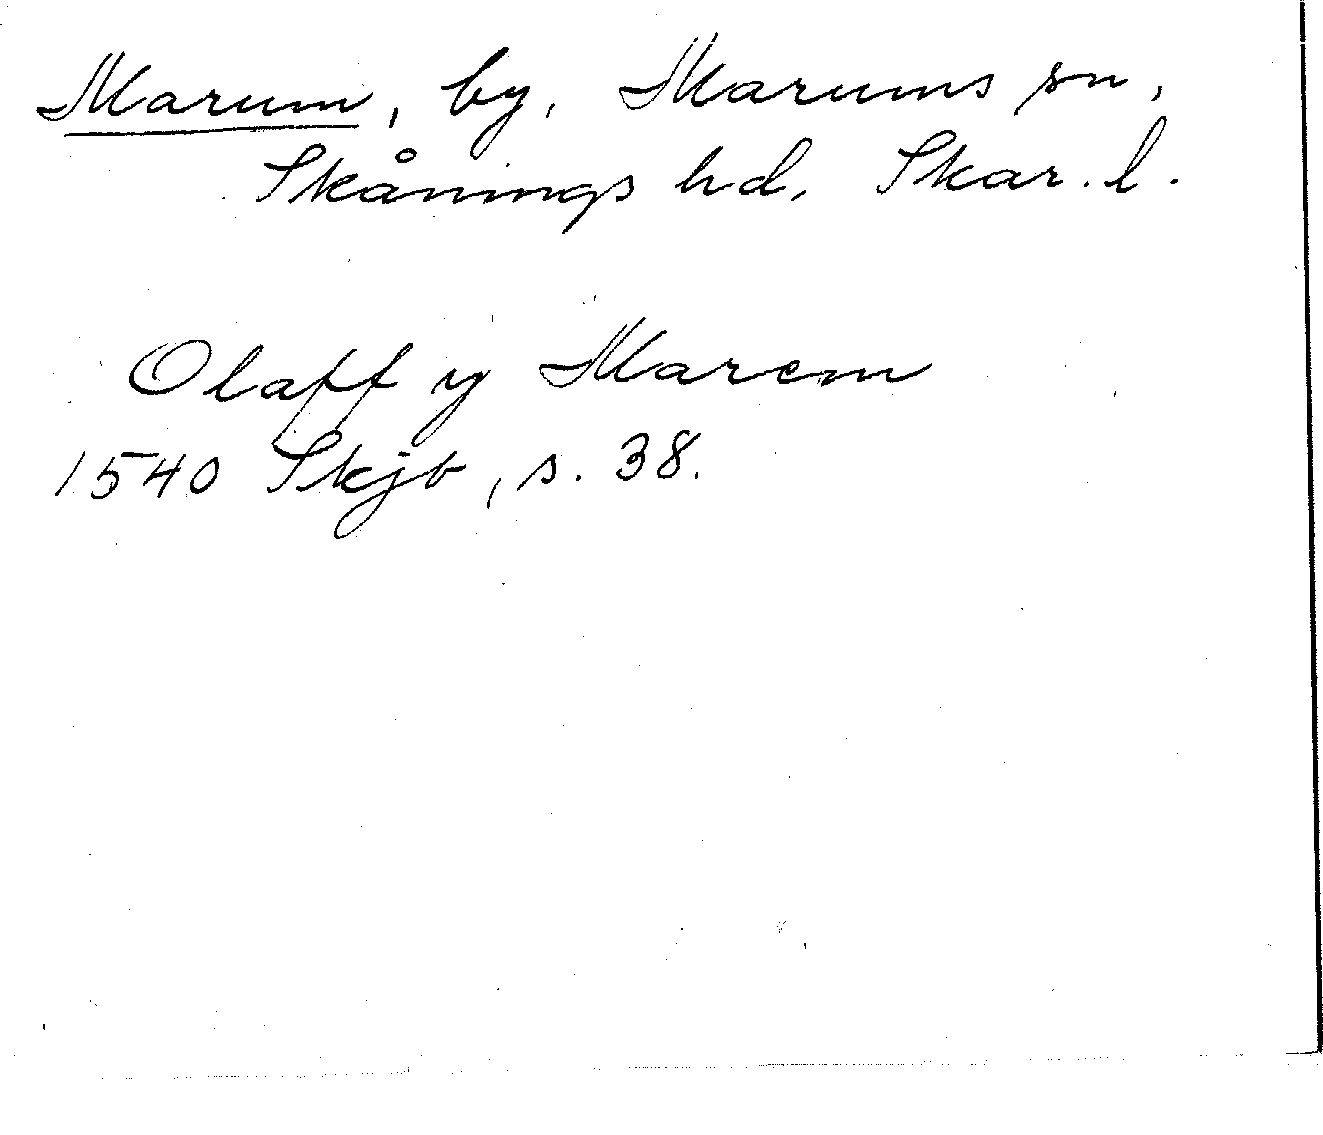 Marum, by, Marums sn,
Skånings hd, Skar. l.
Olaff y Marem
1540 Skjb, s. 38.